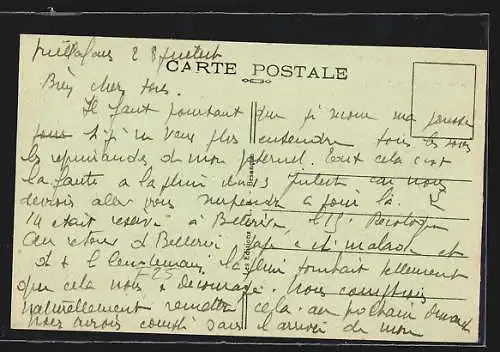 28 Juillet
CARTE POSTALE
Bien chers tous.
Il faut pourtant que je secoue ma paresse
et je ne veux plus entendre tous les soirs
les reprimandes de mon paternel. Tout cela c'est
la faute à la pluie du 13 Juillet car nous
devions aller vous surprendre ce jour là. Le
14 était reservé à Bellerive, le 15
Au retour de Bellerive malade et
le lendemain la pluie tombait tellement
que cela nous a decouragé. Nous comptions
naturellement remettre cela au prochain dimanche
nous avions compté sans l'arrivée de mon
Les Editions